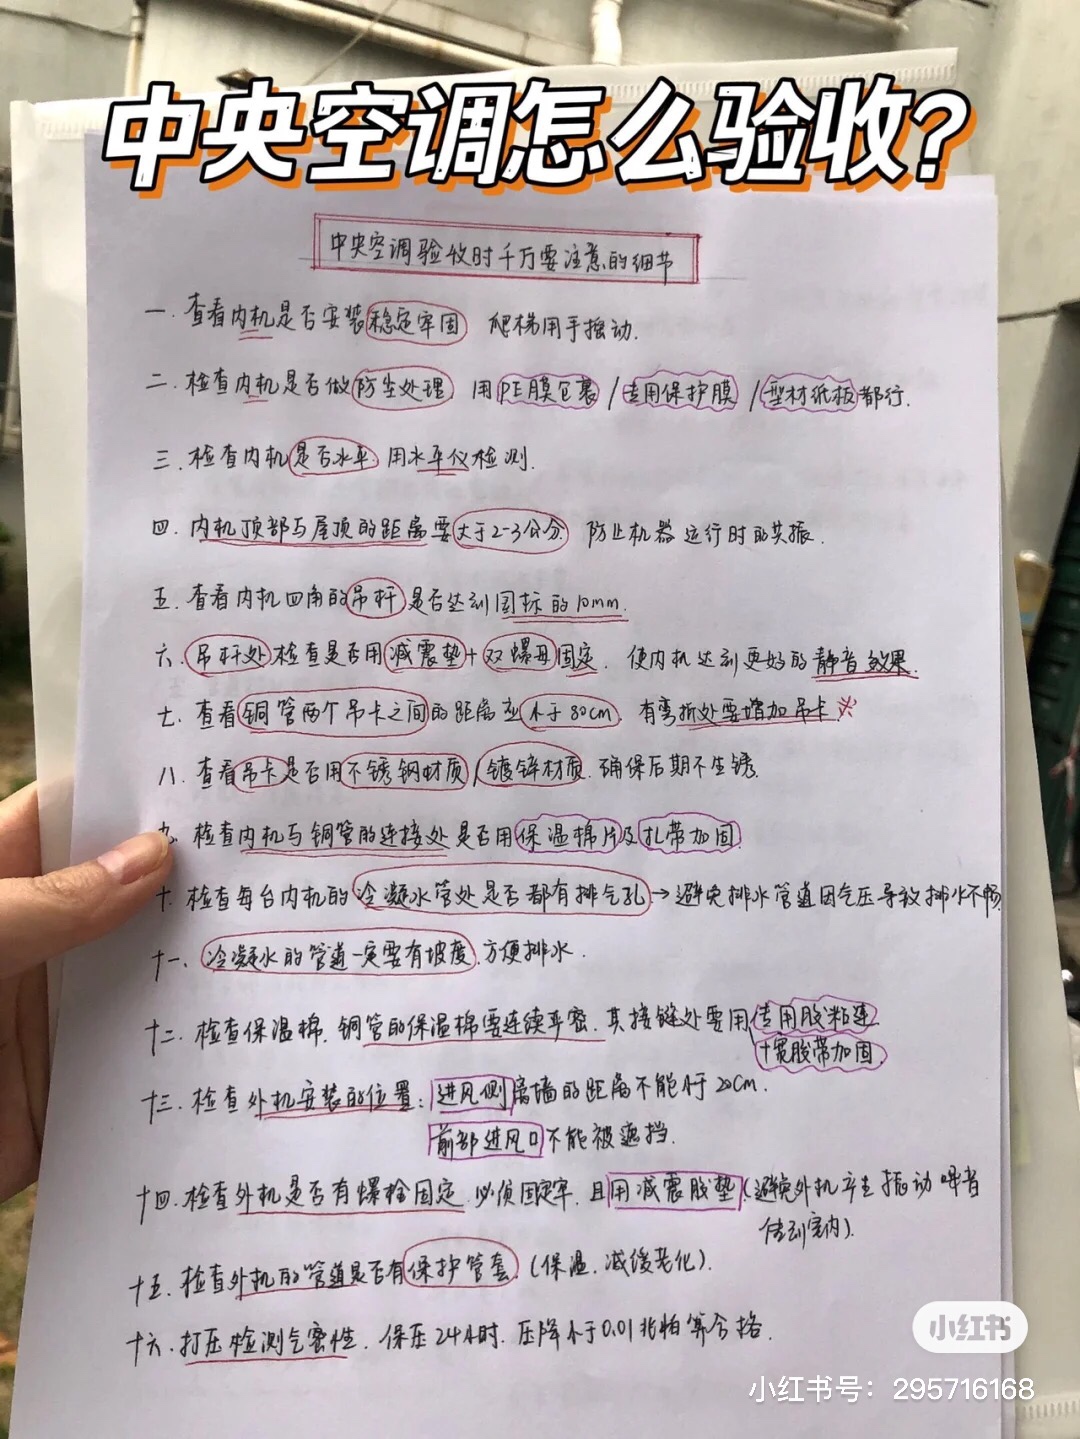 中央空调怎么验收?
中央空调验收时千万要注意的细节
一.查看内机是否安装稳定牢固 爬梯用手摇动.
二.检查内机是否做防尘处理 用PE膜包裹/专用保护膜/型材纸板都行.
三.检查内机是否水平 用水平仪检测.
四.内机顶部与屋顶的距离要大于2-3公分. 防止机器运行时的共振.
五.查看内机四角的吊杆是否达到国标的10mm.
六.吊杆处检查是否用减震垫+双螺母固定. 使内机达到更好的静音效果.
七.查看铜管两个吊卡之间的距离应小于80cm. 有弯折处要增加吊卡※
八.查看吊卡是否用不锈钢材质/镀锌材质.确保后期不生锈.
九.检查内机与铜管的连接处是否用保温棉片及扎带加固
十.检查每台内机的冷凝水管处是否都有排气孔→避免排水管道因气压导致排水不畅
十一.冷凝水的管道一定要有坡度.方便排水.
十二.检查保温棉.铜管的保温棉要连续严密.其接缝处要用专用胶粘连
+宽胶带加固.
十三.检查外机安装的位置:进风侧离墙的距离不能小于20cm.
前部进风口不能被遮挡.
十四.检查外机是否有螺栓固定.必须固定牢.且用减震胶垫(避免外机产生振动噪音
传到室内).
十五.检查外机的管道是否有保护管套.(保温.减缓老化).
十六.打压检测气密性.保压24小时.压降小于0.01兆帕算合格.
小红书
小红书号：295716168